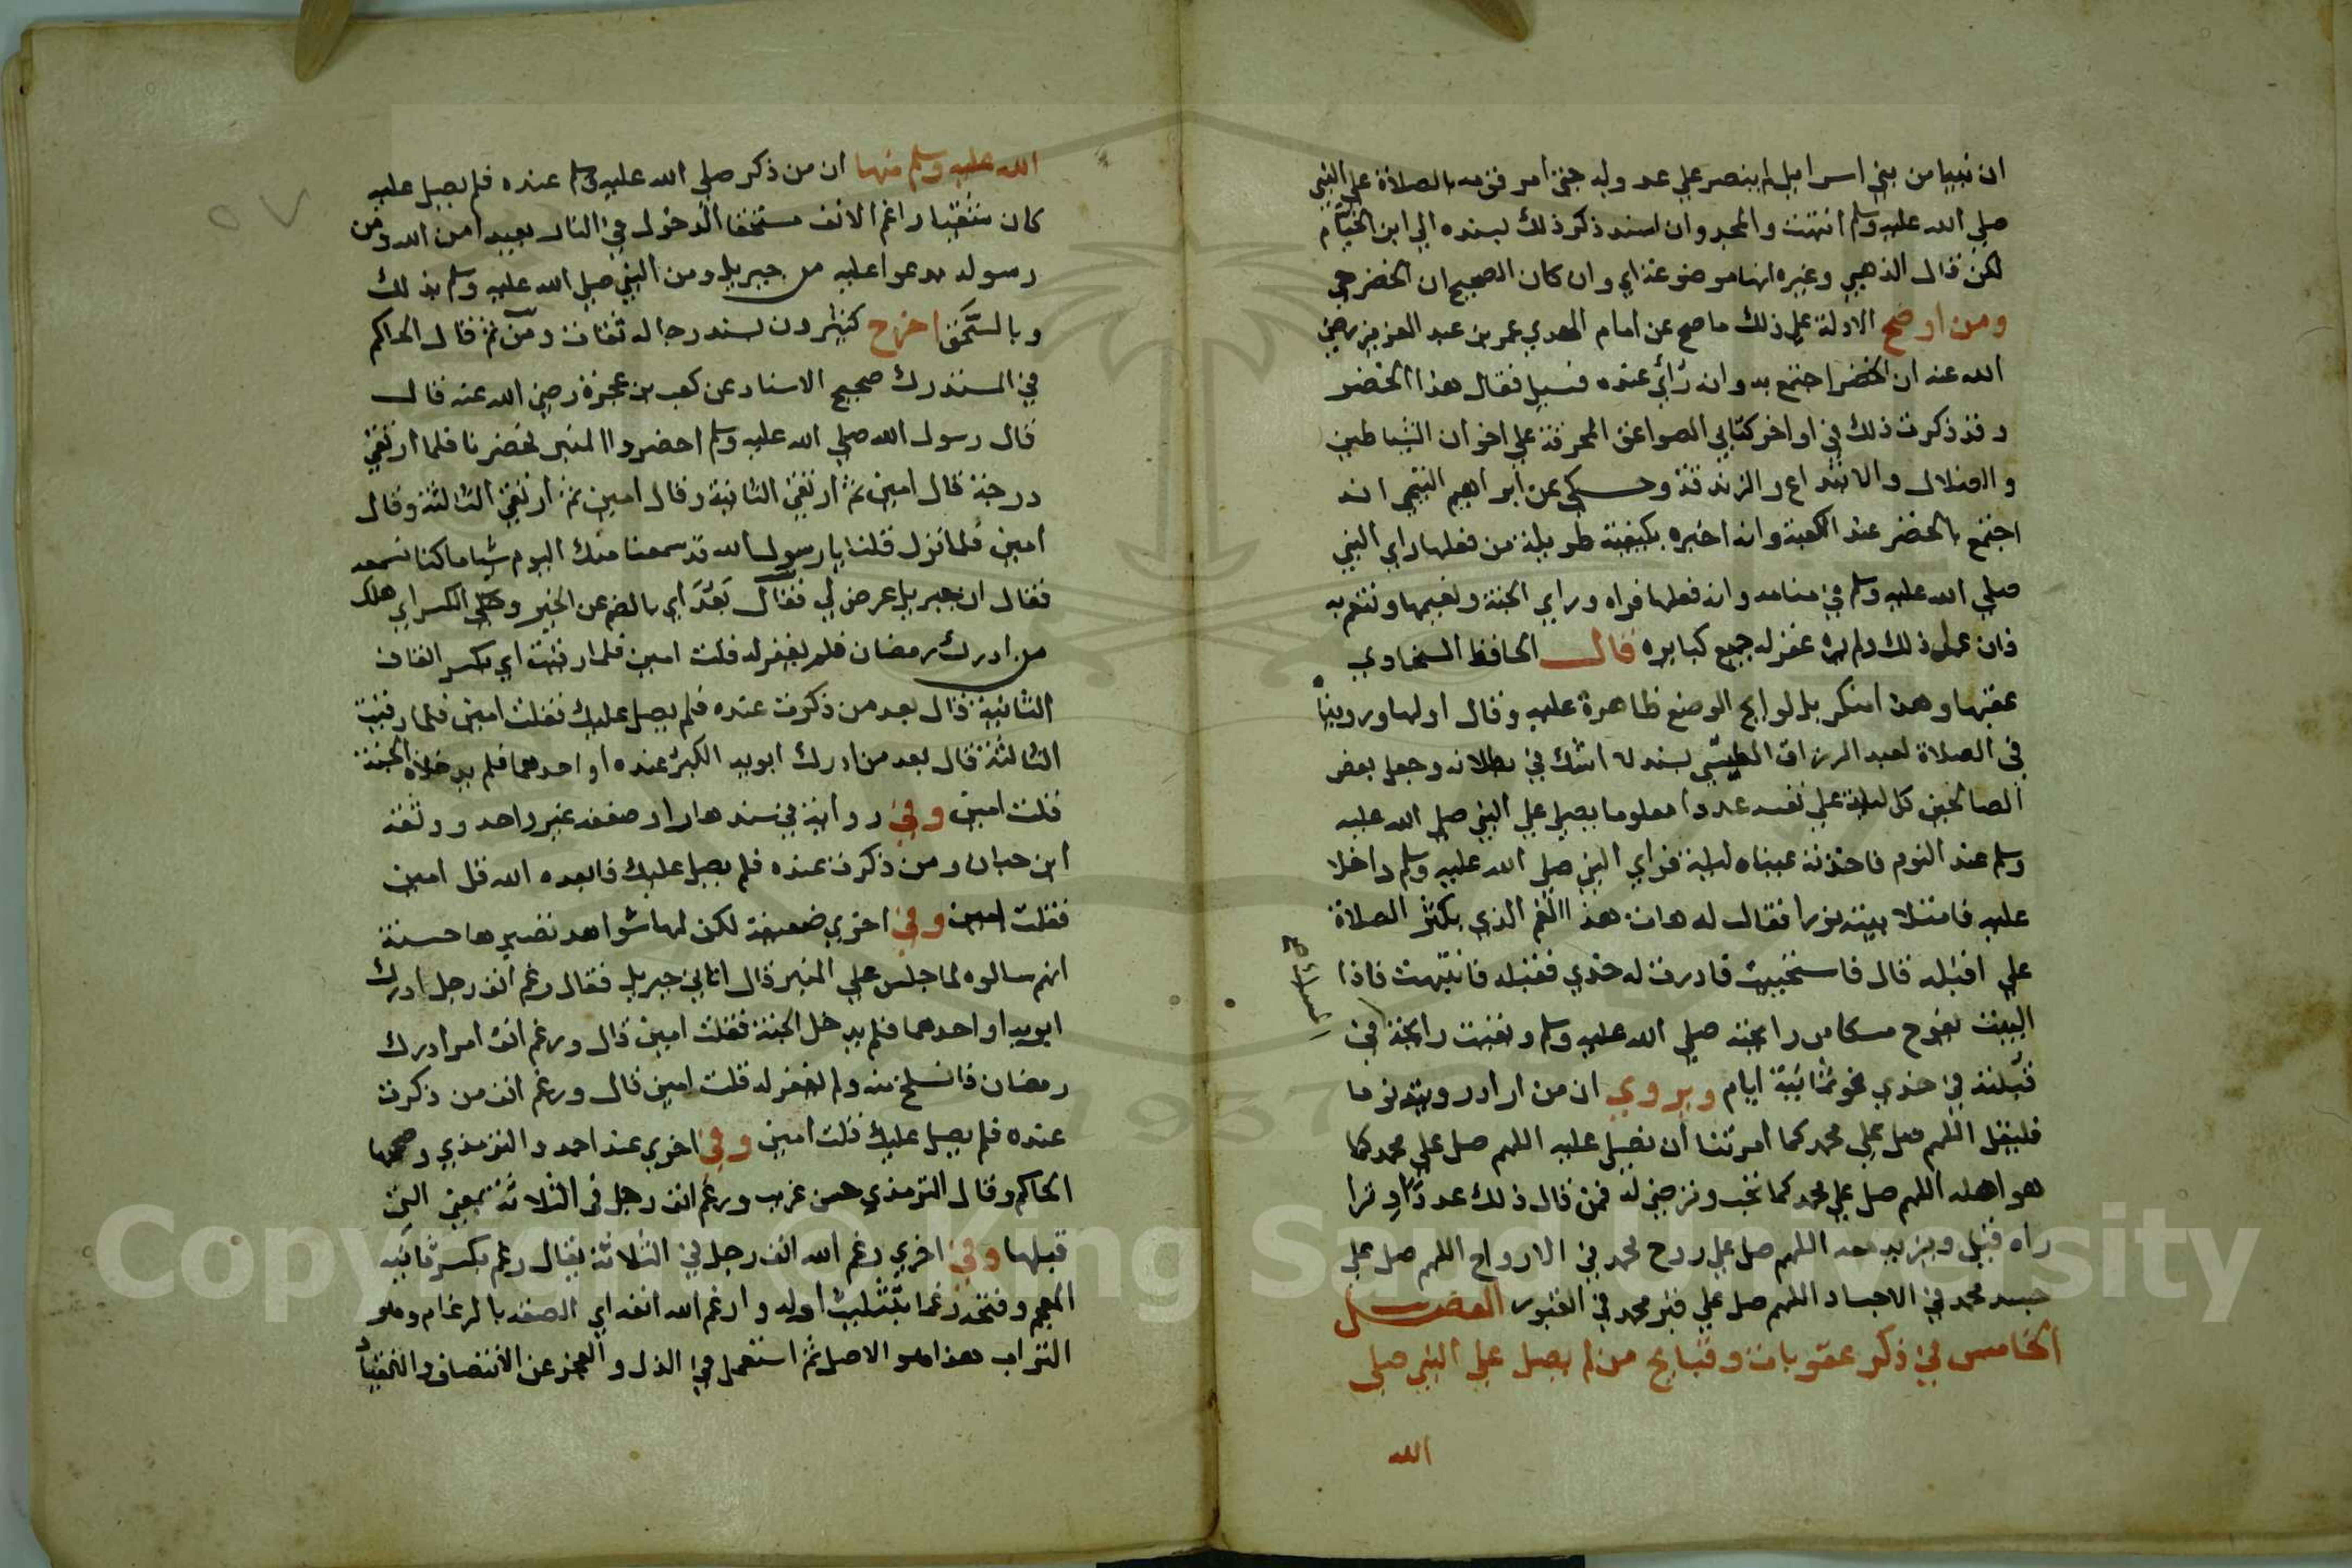 ان نبيا من بني اسراييل لم ينصر علي عدوله حتي امر قومه بالصلاة علي النبي
صلي الله عليه وسلم انتهت والمجد وان اسند ذكر ذلك بسنده الي ابن الخيام
لكن قال الذهبي وغيره انها موضوعة اي وان كان الصحيح ان الخضر حي
ومن اوضح الادلة علي ذلك ما صح عن امام الهدي عمر بن عبد العزيز رضي
الله عنه ان الخضر اجتمع به وانه رأي عنده فسيل فقال هذا الخضر
وقد ذكرت ذلك في اواخر كتابي الصواعق المحرقة علي اخوان الشياطين
والضلال والابتداع والزندقة وحكي عن ابراهيم التيمي انه
اجتمع بالخضر عند الكعبة وانه اخبره بكيفية طويلة من فعلها راي النبي
صلي الله عليه وسلم في منامه وانه فعلها فراه وراي الجنة ونعيمها وتنعم به
فان عمل ذلك ولم يره غفر له جميع كبايره قال الحافظ السخاوي
عقبها وهذا منكر بل لوايح الوضع ظاهرة عليه وقال اولها وروينا
في الصلاة لعبد الرزاق الطبسي بسند لا اشك في بطلانه وجعل بعض
الصالحين كل ليلة علي نفسه عددا معلوما يصلي علي النبي صلي الله عليه
وسلم عند النوم فاخذته عيناه ليلة فراي النبي صلي الله عليه وسلم داخلا
عليه فامتلا بيته نورا فقال له هات هذا الفم الذي يكثر الصلاة
علي اقبله قال فاستحييت فادرت له خدي فقبله فانتبهت فاذا
البيت يفوح مسكا من رايحته صلي الله عليه وسلم وبقيت رايحة في
قبلته في خدي نحو ثمانية ايام ويروي ان من اراد رويته نوما
فليقل اللهم صل علي محمد كما امرتنا ان نصلي عليه اللهم صل علي محمد كما
هو اهله اللهم صل علي محمد كما تحب وترضي له فمن قال ذلك عددا وترا
راه قيل ويزيد معه اللهم صل علي روح محمد في الارواح اللهم صل علي
جسد محمد في الاجساد اللهم صل علي قبر محمد في القبور الفصل
الخامس في ذكر عقوبات وقبايح من لم يصل علي النبي صلي
الله
الله عليه وسلم منها ان من ذكر صلي الله عليه وسلم عنده فلم يصل عليه
كان شقيا راغم الانف مستحقا الدخول في النار بعيدا من الله ومن
رسوله مدعوا عليه من جبريل ومن النبي صلي الله عليه وسلم بذلك
وبالسحق اخرج كثيرون بسند رجاله ثقات ومن ثم قال الحاكم
في المستدرك صحيح الاسناد عن كعب بن عجرة رضي الله عنه قال
قال رسول الله صلي الله عليه وسلم احضروا المنبر فحضرنا فلما ارتقي
درجة قال امين ثم ارتقي الثانية وقال امين ثم ارتقي الثالثة وقال
امين فلما نزل قلنا يا رسول الله قد سمعنا منك اليوم شيا ما كنا نسمعه
فقال ان جبريل عرض لي فقال بعد اي بالضم عن الخير وحكي الكسر اي هلك
من ادرك رمضان فلم يغفر له قلت امين فلما رقيت اي بكسر القاف
الثانية قال بعد من ذكرت عنده فلم يصل عليك فقلت امين فلما رقيت
الثالثة قال بعد من ادرك ابويه الكبر عنده او احدهما فلم يدخلاه الجنة
قلت امين وفي رواية في سندها راو ضعفه غير واحد ووثقه
ابن حبان ومن ذكرت عنده فلم يصل عليك فابعده الله قل امين
فقلت امين وفي اخري ضعيفة لكن لها شواهد تصيرها حسنة
انهم سالوه لما جلس علي المنبر قال اتاني جبريل فقال رغم انف رجل ادرك
ابويه او احدهما فلم يدخل الجنة فقلت امين قال ورغم انف امر ادرك
رمضان فانسلخ منه ولم يغفر له قلت امين قال ورغم انف من ذكرت
عنده فلم يصل عليك قلت امين وفي اخري عند احمد والترمذي وصححها
الحاكم وقال الترمذي حسن غريب ورغم انف رجل في الثلاثة بمعني التي
قبلها وفي اخري رغم الله انف رجل في الثلاثة يقال رغم بكسر ثانيه
المعجم وفتحه رغما بتثليث اوله وارغم الله انفه اي الصقه بالرغام وهو
التراب هذا هو الاصل ثم استعمل في الذل والعجز عن الانتصاف والانقياد
٥٧
Copyright © King Saud University
1957